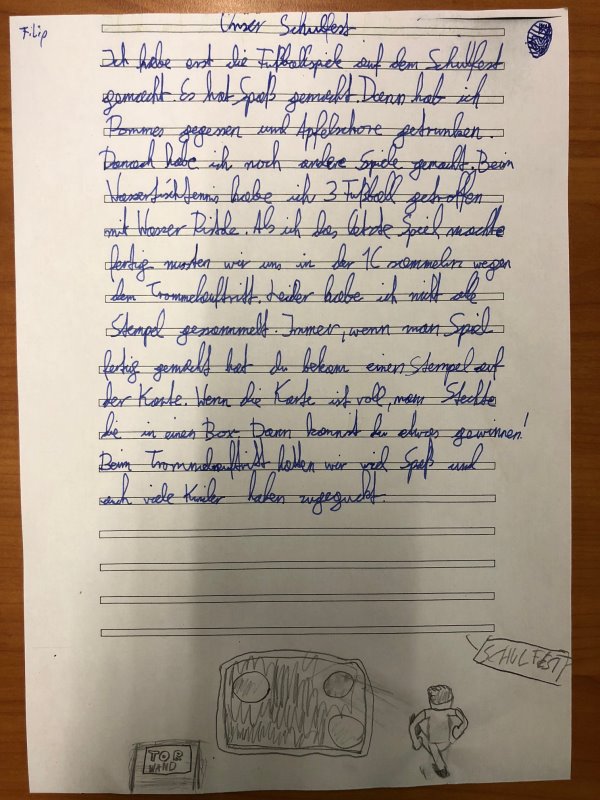 Filip
Unser Schulfest
Ich habe erst die Fußballspiele auf dem Schulfest
gemacht. Es hat Spaß gemacht. Dann hab ich
Pommes gegessen und Apfelschore getrunken.
Danach habe ich noch andere Spiele gemacht. Beim
Wassertischtennis habe ich 3 Fußball getroffen
mit Wasser Pistole. Als ich das letzte Spiel machte
fertig mussten wir uns in der 1C sammeln wegen
dem Trommelauftritt. Leider habe ich nicht alle
Stempel gesammelt. Immer, wenn man Spiel
fertig gemacht hat du bekom einen Stempel auf
der Karte. Wenn die Karte ist voll, man Steckte
die in einen Box. Dann kannst du etwas gewinnen!
Beim Trommelauftritt hatten wir viel Spaß und
auch viele Kinder haben zugeguckt.
SCHULFEST
TOR
WAND